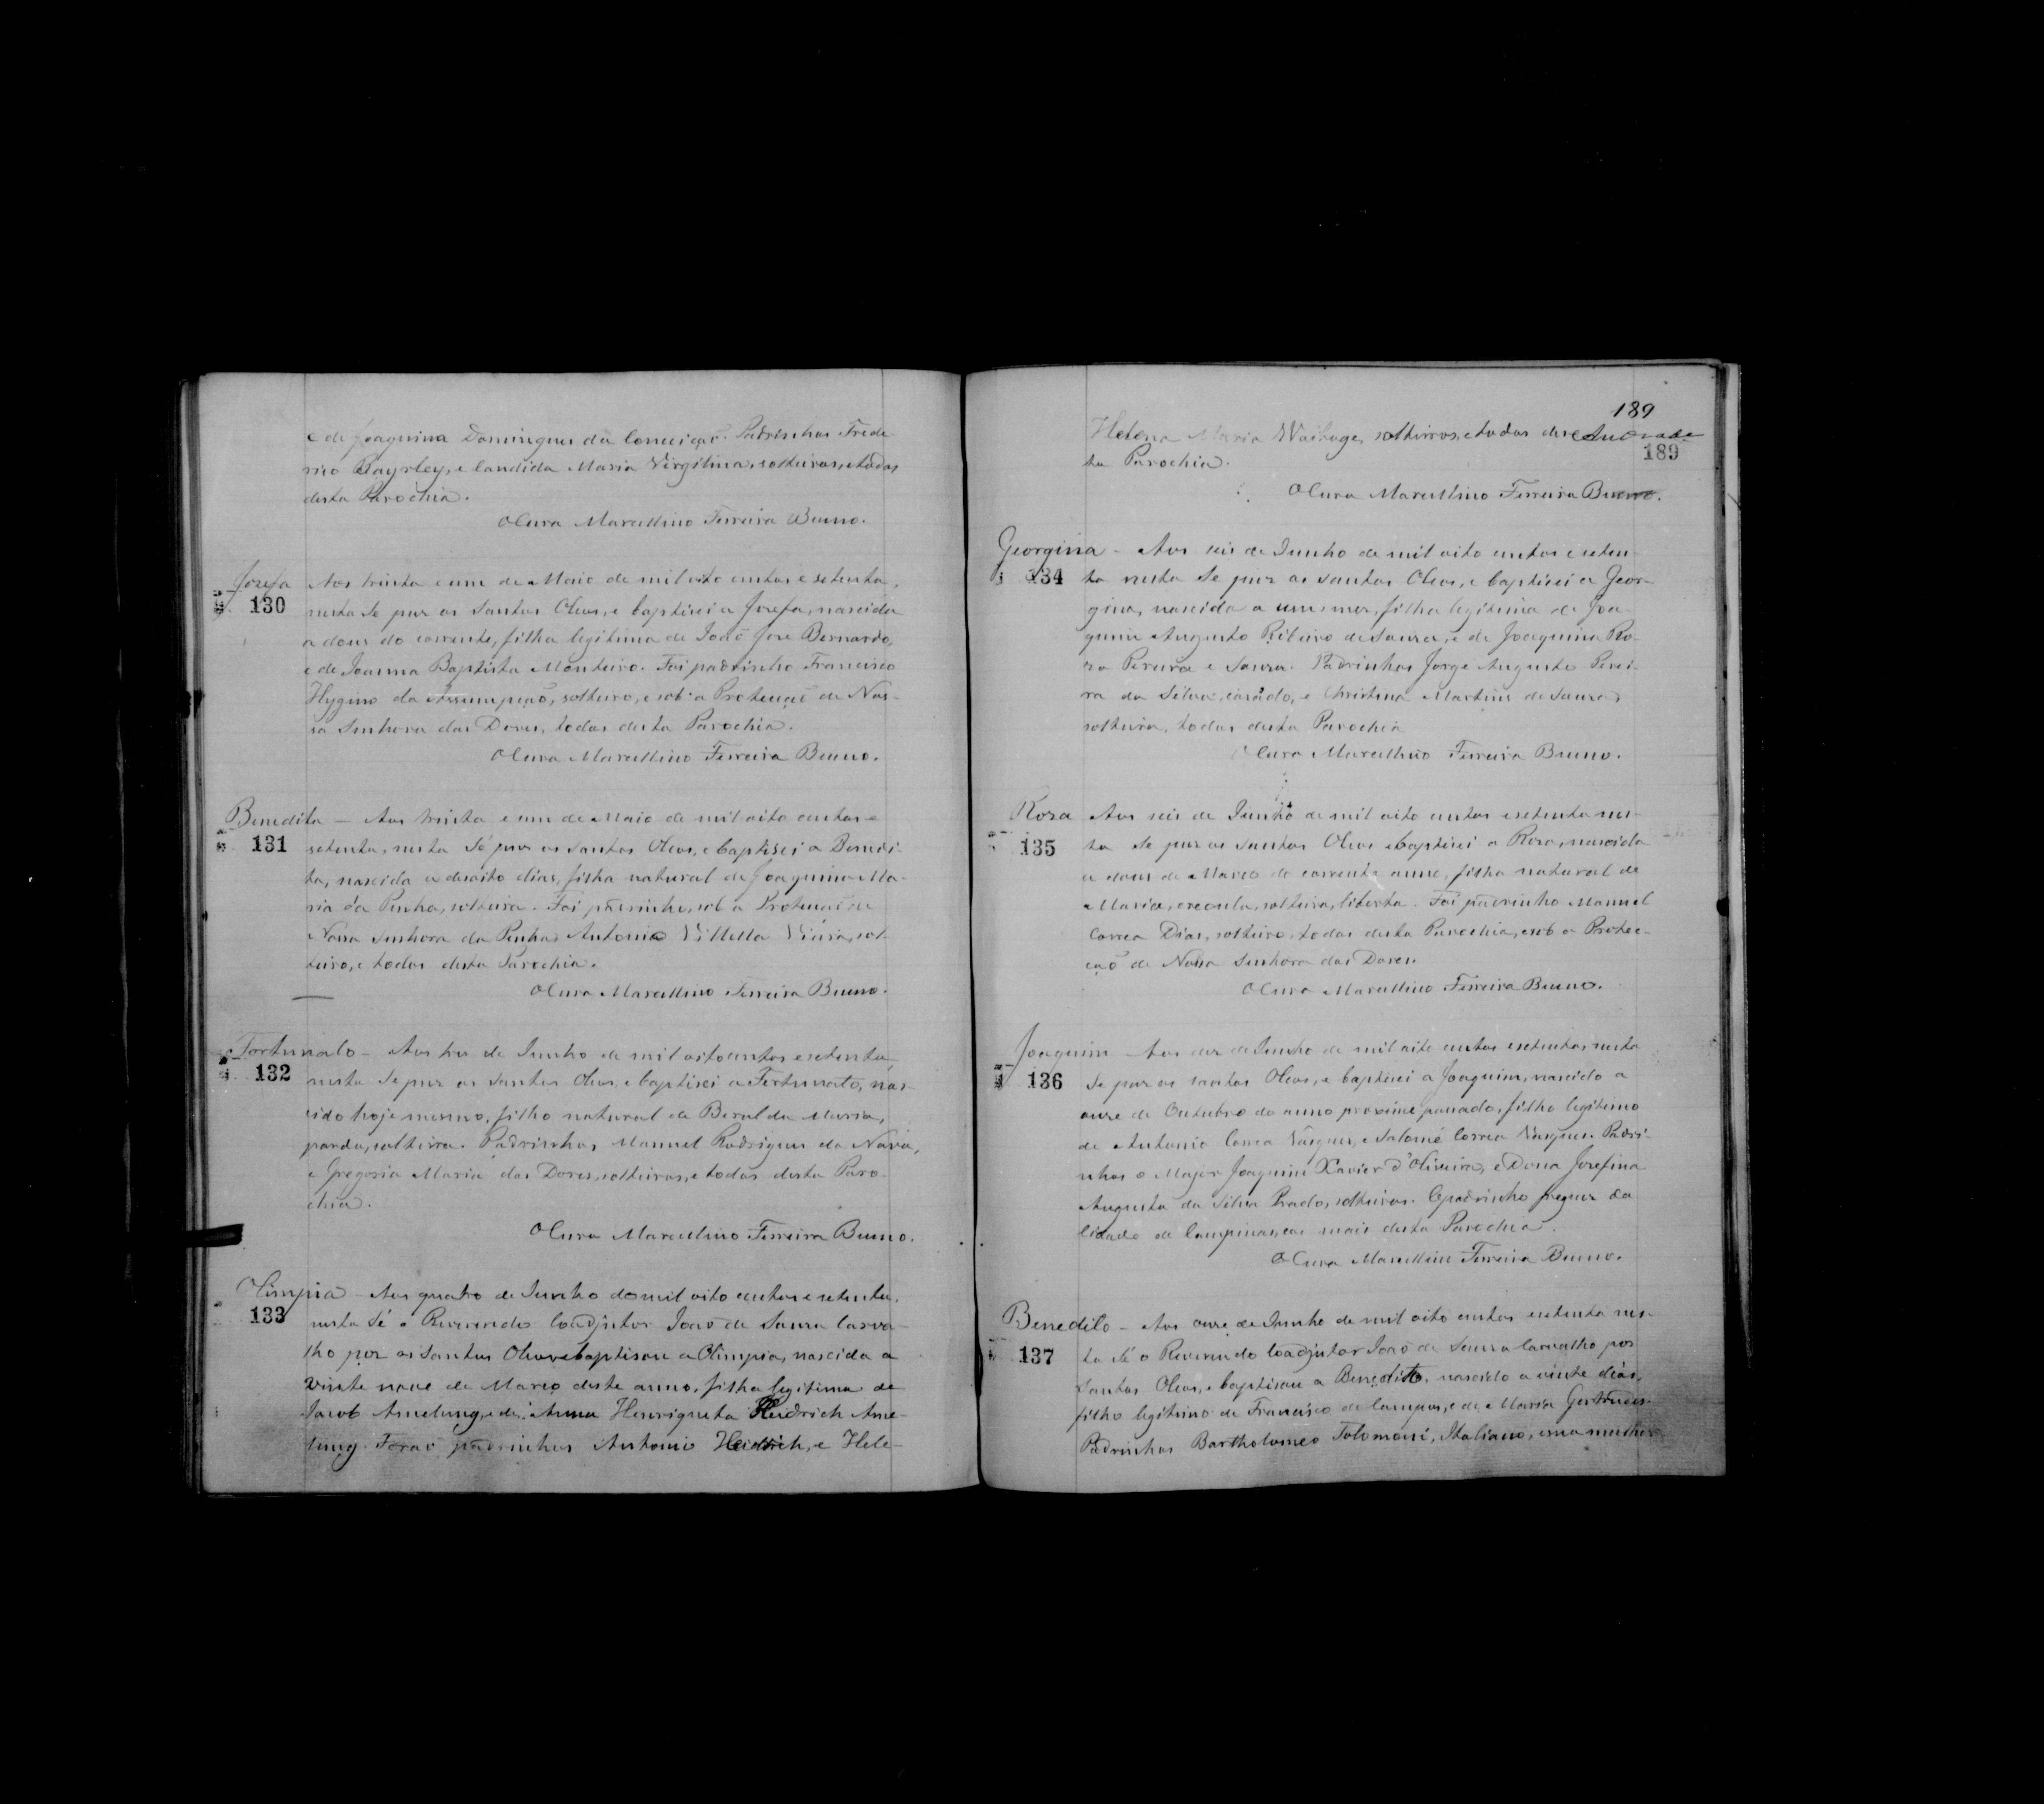 e de Joaquina Domingues da Conceiçaõ. Padrinhos Frede-
rico Bayrley, e Candida Maria Virgilina, solteiros, e todos
desta Parochia.
O Cura Marcellino Ferreira Bueno.
Jozefa
130
Aos trinta e um de Maio de mil oito centos e setenta,
nesta Sé puz os Santos Oleos, e baptisei a Jozefa, nascida
a dous do corrente, filha legitima de Joaõ Jose Bernardo,
e de Joanna Baptista Monteiro. Foi padrinho Francisco
Hygino da Assumpçaõ, solteiro, e sob a Protecçaõ de Nos-
sa Senhora das Dores, todos desta Parochia.
O Cura Marcellino Ferreira Bueno.
Benedita
131
- Aos trinta e um de Maio de mil oito centos e
setenta, nesta Sé puz os Santos Oleos, e baptisei a Benedi-
ta, nascida a desoito dias, filha natural de Joaquina Ma-
ria da Penha, solteira. Foi padrinho, sob a Protecçaõ de
Nossa Senhora da Penha, Antonio Villella Vieira, sol-
teiro, e todos desta Parochia.
O Cura Marcellino Ferreira Bueno.
Fortunato
132
- Aos tres de Junho de mil oitocentos e setenta
nesta Sé puz os Santos Oleos, e baptisei a Fortunato, nas-
cido hoje mesmo, filho natural de Beralda Maria,
parda, solteira. Padrinhos, Manuel Rodrigues da
e Gregoria Maria das Dores, solteiros, e todos desta Paro-
chia.
O Cura Marcellino Ferreira Bueno.
Olimpia
133
- Aos quatro de Junho de mil oito centos e setenta,
nesta Sé o Reverendo Coadjutor Joaõ de Souza Carva-
lho poz os Santos Oleos e baptisou a Olimpia, nascida a
vinte nove de Março deste anno, filha legitima de
Jacob Amelung, e de Anna Henriqueta Heidrich Ame-
lung. Foraõ padrinhos Antonio Heidrich, e Hele-
189
189
Helena Maria solteiros, e todos des
ta Parochia.
O Cura Marcellino Ferreira Bueno.
Georgina
134
- Aos seis de Junho de mil oito centos e seten-
ta nesta Sé puz os santos Oleos, e baptisei a Geor-
gina, nascida a um mez, filha legitima de Joa-
quim Augusto Ribeiro de Souza, e de Joaquina Ro-
za Pereira e Souza. Padrinhos Jorge Augusto Perei-
ra da Silva, casado, e Christina Martins de Souza,
solteira, todos desta Parochia
O Cura Marcellino Ferreira Bueno.
Roza
135
Aos seis de Junho de mil oito centos e setenta nes-
ta Sé puz os Santos Oleos e baptisei a Roza, nascida
a dous de Março do corrente anno, filha natural de
Maria, creoula, solteira, liberta. Foi padrinho Manuel
Correa Dias, solteiro, todos desta Parochia, e sob a Protec-
çaõ de Nossa Senhora das Dores.
O Cura Marcellino Ferreira Bueno.
Joaquim
136
- Aos dez de Junho de mil oito centos e setenta, nesta
Sé puz os santos Oleos, e baptisei a Joaquim, nascido a
onze de Outubro do anno proximo passado, filho legitimo
de Antonio Correa Vasques, e Salomé Correa Vasques. Padri-
nhos o Major Joaquim Xavier d'Oliveira, e Dona Jozefina
Augusta da Silva Prado, solteiros. O padrinho freguez da
Cidade de Campinas, e os mais desta Parochia.
O Cura Marcellino Ferreira Bueno.
Benedito
137
- Aos onze de Junho de mil oito centos e setenta nes-
ta Sé o Reverendo Coadjutor Joaõ de Souza Carvalho poz
Santos Oleos, e baptisou a Benedito, nascido a vinte dias,
filho legitimo de Francisco de Campos, e de Maria Gertrudes.
Padrinhos Bartholomeo Tolomoni, Italiano, e sua mulher